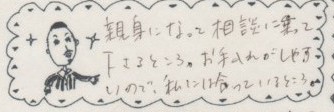 親身になって相談に乗って
下さるところ。お手入れがしやす
いので、私には合っているところ。